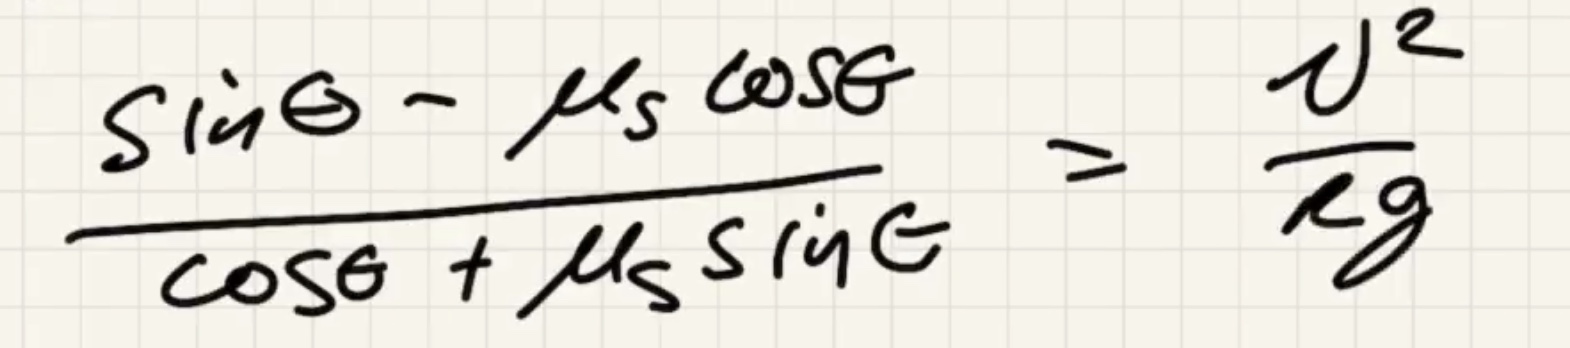 (sinθ - μs cosθ)/(cosθ + μs sinθ) = v²/rg